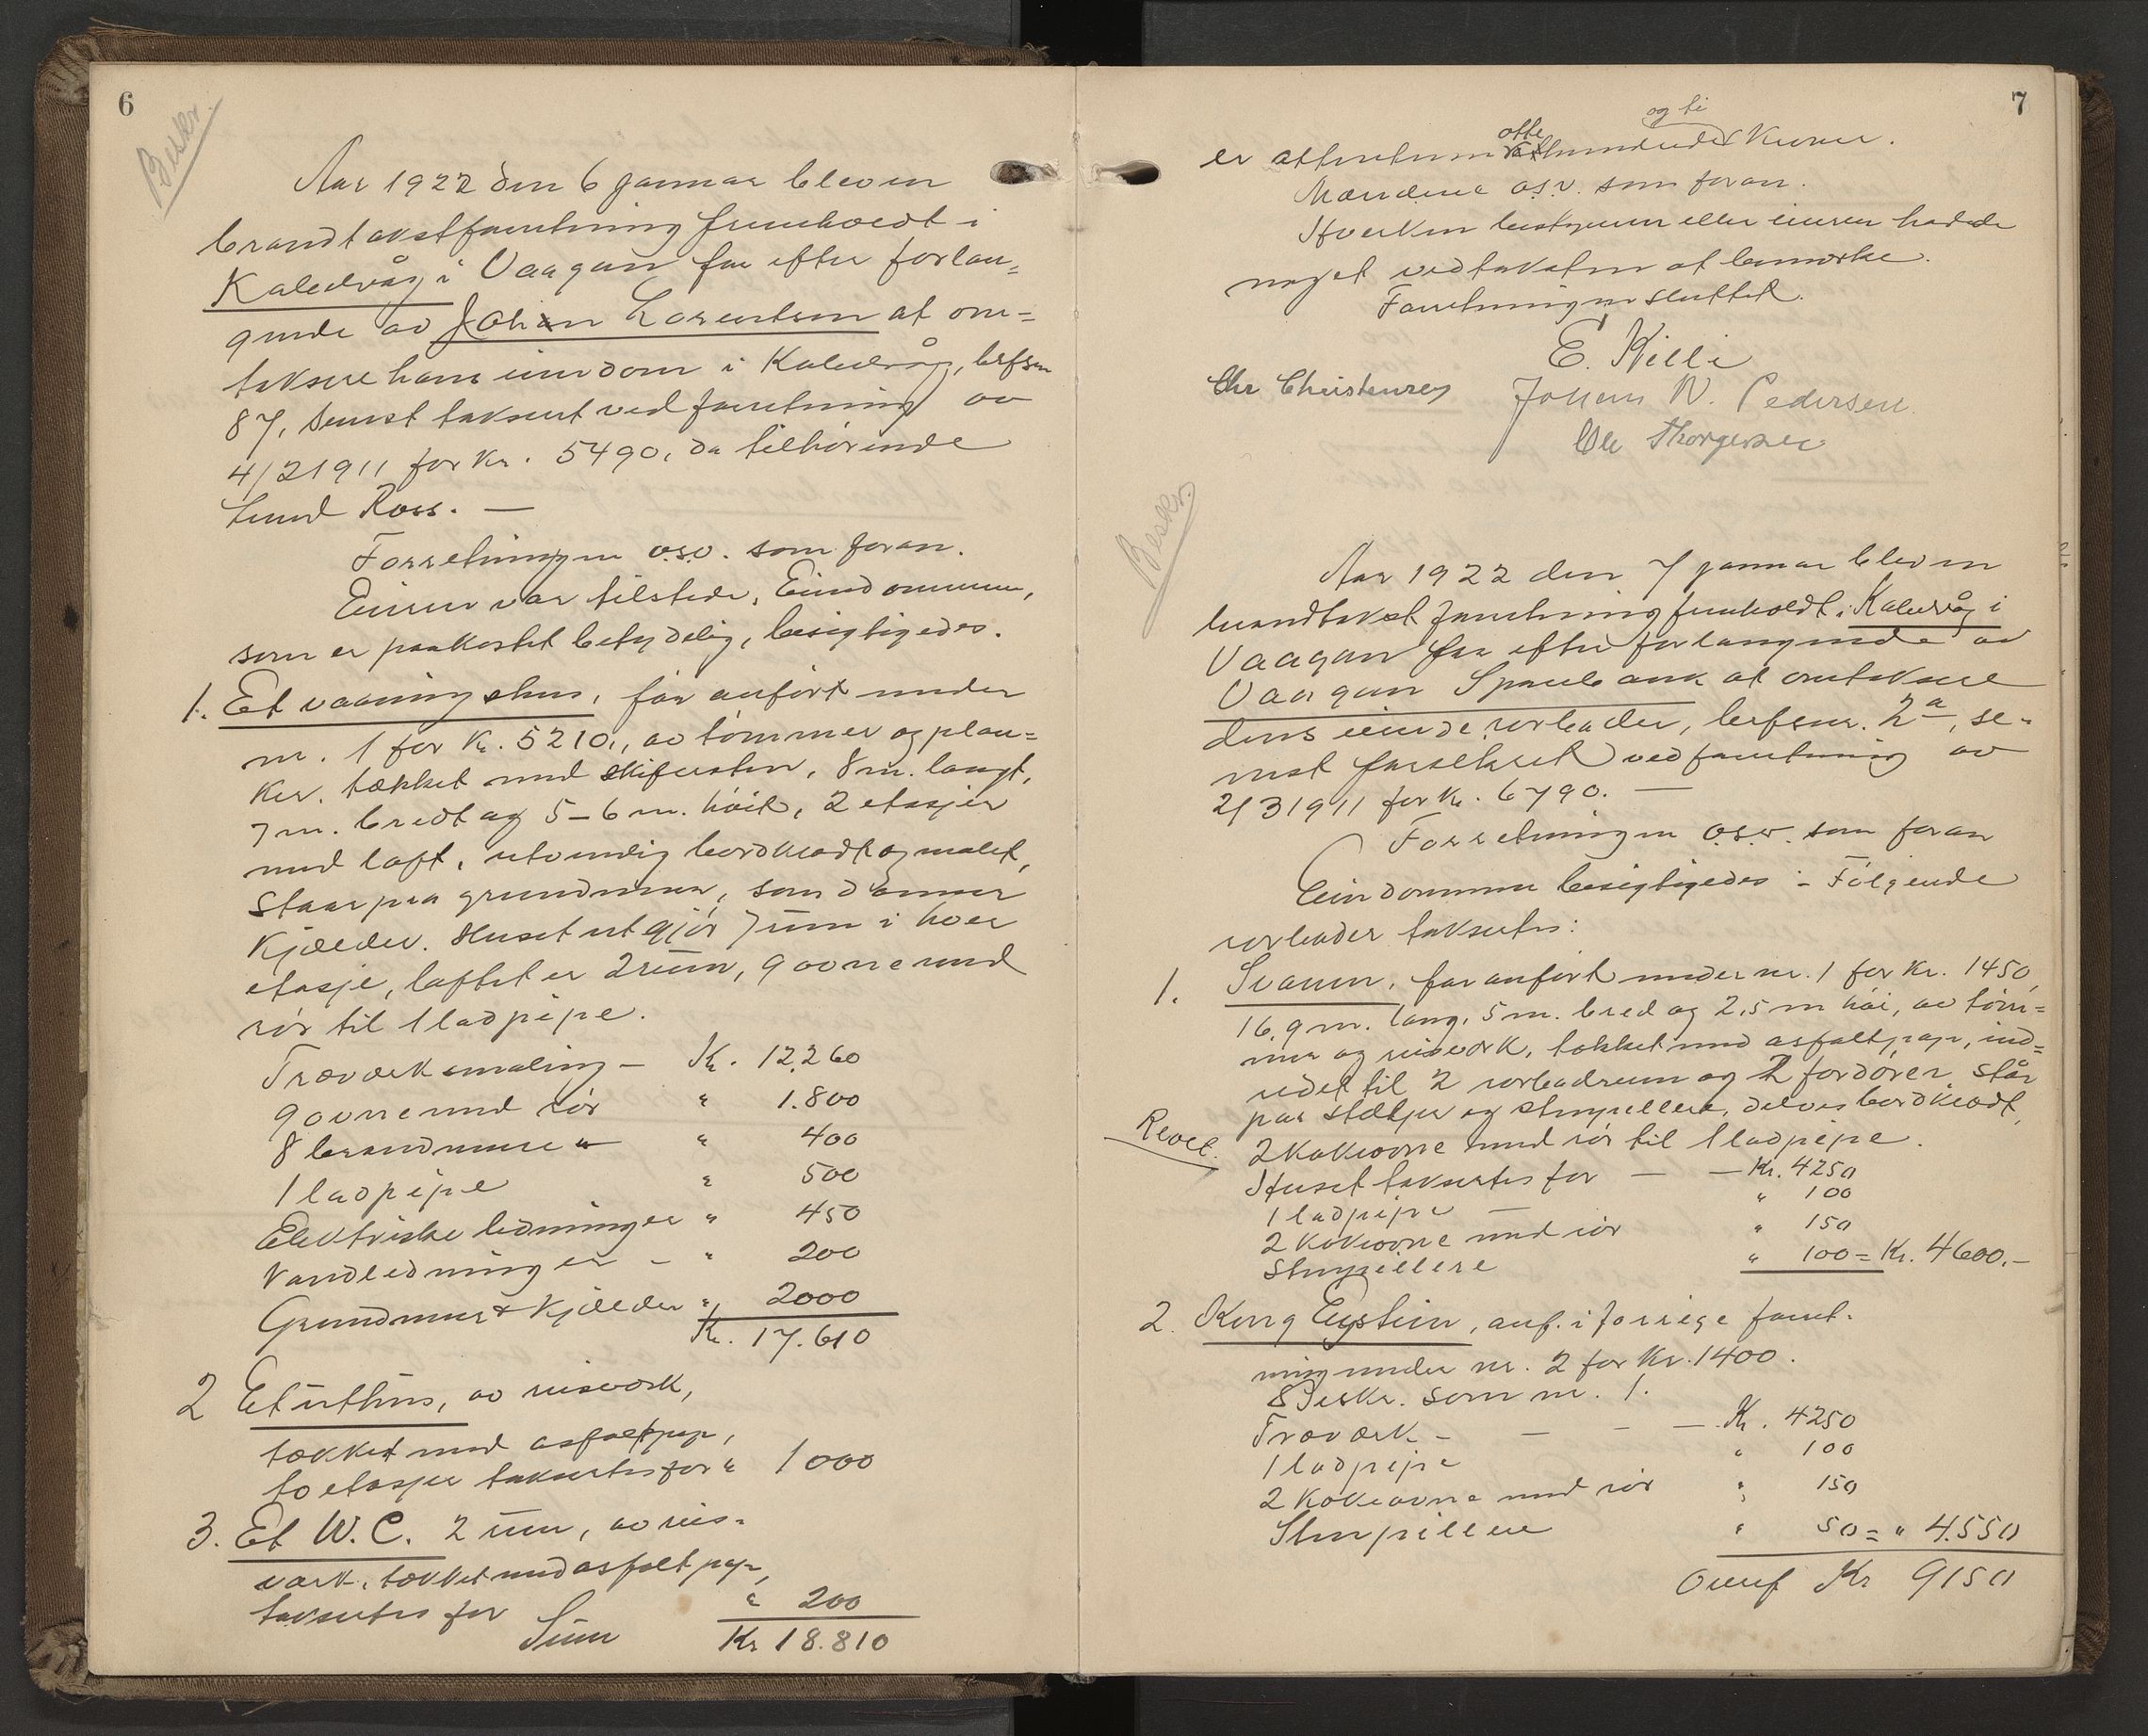 6
Beskr.
Aar 1922 den 6 januar blev en
brandtakstforretning fremholdt i
Kalelvåg i Vaagan for efter forlan=
gende av Johan Lorentsen at om=
taksere hans eiendom i Kalelvåg, brfsnr
87, senest taksert ved forretning av
4/2 1911 for Kr. 5490, da tilhørende
Lund Ross. —
Forretningen o.s.v. som foran.
Eieren var tilstede. Eiendommen,
som er paakostet betydelig, besigtigedes.
1. Et vaaningshus, før anført under
nr. 1 for Kr. 5210,, av tømmer og plan=
ker, tækket med skifersten, 8 m. langt,
7 m. bredt og 5-6 m. høit, 2 etasjer
med loft, utvendig bordklædt og malet,
staar paa grundmur, som danner
Kjælder. Huset utgjør 7 rum i hver
etasje, loftet er 2 rum, 9 ovne med
rør til 1 ladpipe.
Træværk maling - Kr. 12.260
9 ovne med rør " 1.800
8 brandmure " " 400
1 ladpipe " 500
Elektriske ledninger " 450
Vandledninger - " 200
Grundmur & Kjælder " 2000
Kr. 17.610
2 Et uthus, av reisværk,
tækket med asfaltpap,
to etasjer taksertes for " 1000
3. Et W.C. 2 rum, av reis-
værk, tækket med asfaltpap,
taksertes for " 200
Sum Kr 18.810
7
og ti
otte
er attentusen hundrede Kroner.
Mændene o.s.v. som foran.
Hverken bestyreren eller eieren hadde
noget ved taksten at bemerke.
Forretningen sluttet.
E. Killi
Chr Christensen Johan N. Pedersen
Ole Thorgersen
Beskr.
Aar 1922 den 7 januar blev en
brandtakst forretning fremholdt i Kalelvåg i
Vaagan for efter forlangende av
Vaagan Sparebank at omtaksere
dens eiende rorbuder, brfsnr. 2a, se-
nest forsikret ved forretning av
2/3 1911 for Kr. 6790. —
Forretningen o.s.v. som foran
Eiendommen besigtigedes - Følgende
rorbuder taksertes:
1. Svanen, før anført under nr. 1 for Kr. 1450,
16,9 m. lang, 5 m. bred og 2,5 m høi, av tøm=
mer og reisværk, tækket med asfaltpap, ind=
redet til 2 rorbudrum og 2 fordører, står
paa stolper og stenpillere, delvis bordklædt,
2 Kokeovne med rør til 1 ladpipe.
Huset taksertes for — — Kr. 4250
1 ladpipe — " 100
2 Kokeovne med rør " 150
Stenpillere " 100 = Kr. 4600.-
2. Kong Eystein, anf. i forrige forret-
ning under nr. 2 for Kr. 1400.
Beskr. som nr. 1.
Træværk - - - — Kr. 4250
1 ladpipe " 100
2 Kokeovne med rør " 150
Stenpillere " 50 = " 4.550
Overf Kr 9150